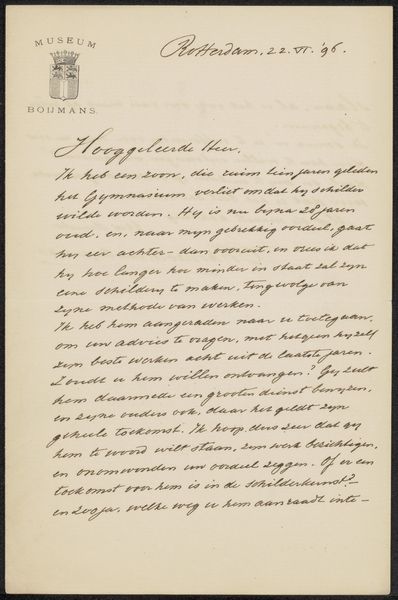 MUSEUM
BOIJMANS.
Rotterdam, 22. VI. '96.
Hooggeleerde Heer,
Ik heb een zoon, die ruim tien jaren geleden
het Gymnasium verliet omdat hij schilder
wilde worden. Hij is nu bijna 28 jaren
oud. en, naar mijn gebrekkig oordeel, gaat
hij eer achter- dan vooruit, en vrees ik dat
hij hoe langer hoe minder in staat zal zijn
eene schilderij te maken, tengevolge van
zijne methode van werken.
Ik heb hem aangeraden naar u toe te gaan
om uw advies te vragen, met hetgeen hij zelf
zijn beste werken acht uit de laatste jaren.
Zoudt u hem willen ontvangen? Gij zult
hem daarmede een grooten dienst bewijzen,
en zijne ouders ook, daar het geldt zijn
geheele toekomst. Ik hoop dus zeer dat gij
hem te woord wilt staan, zijn werk bezichtigen,
en onomwonden uw oordeel zeggen. Of er een
toekomst voor hem is in de schilderkunst? -
en zoo ja, welke weg u hem aanraadt inte-